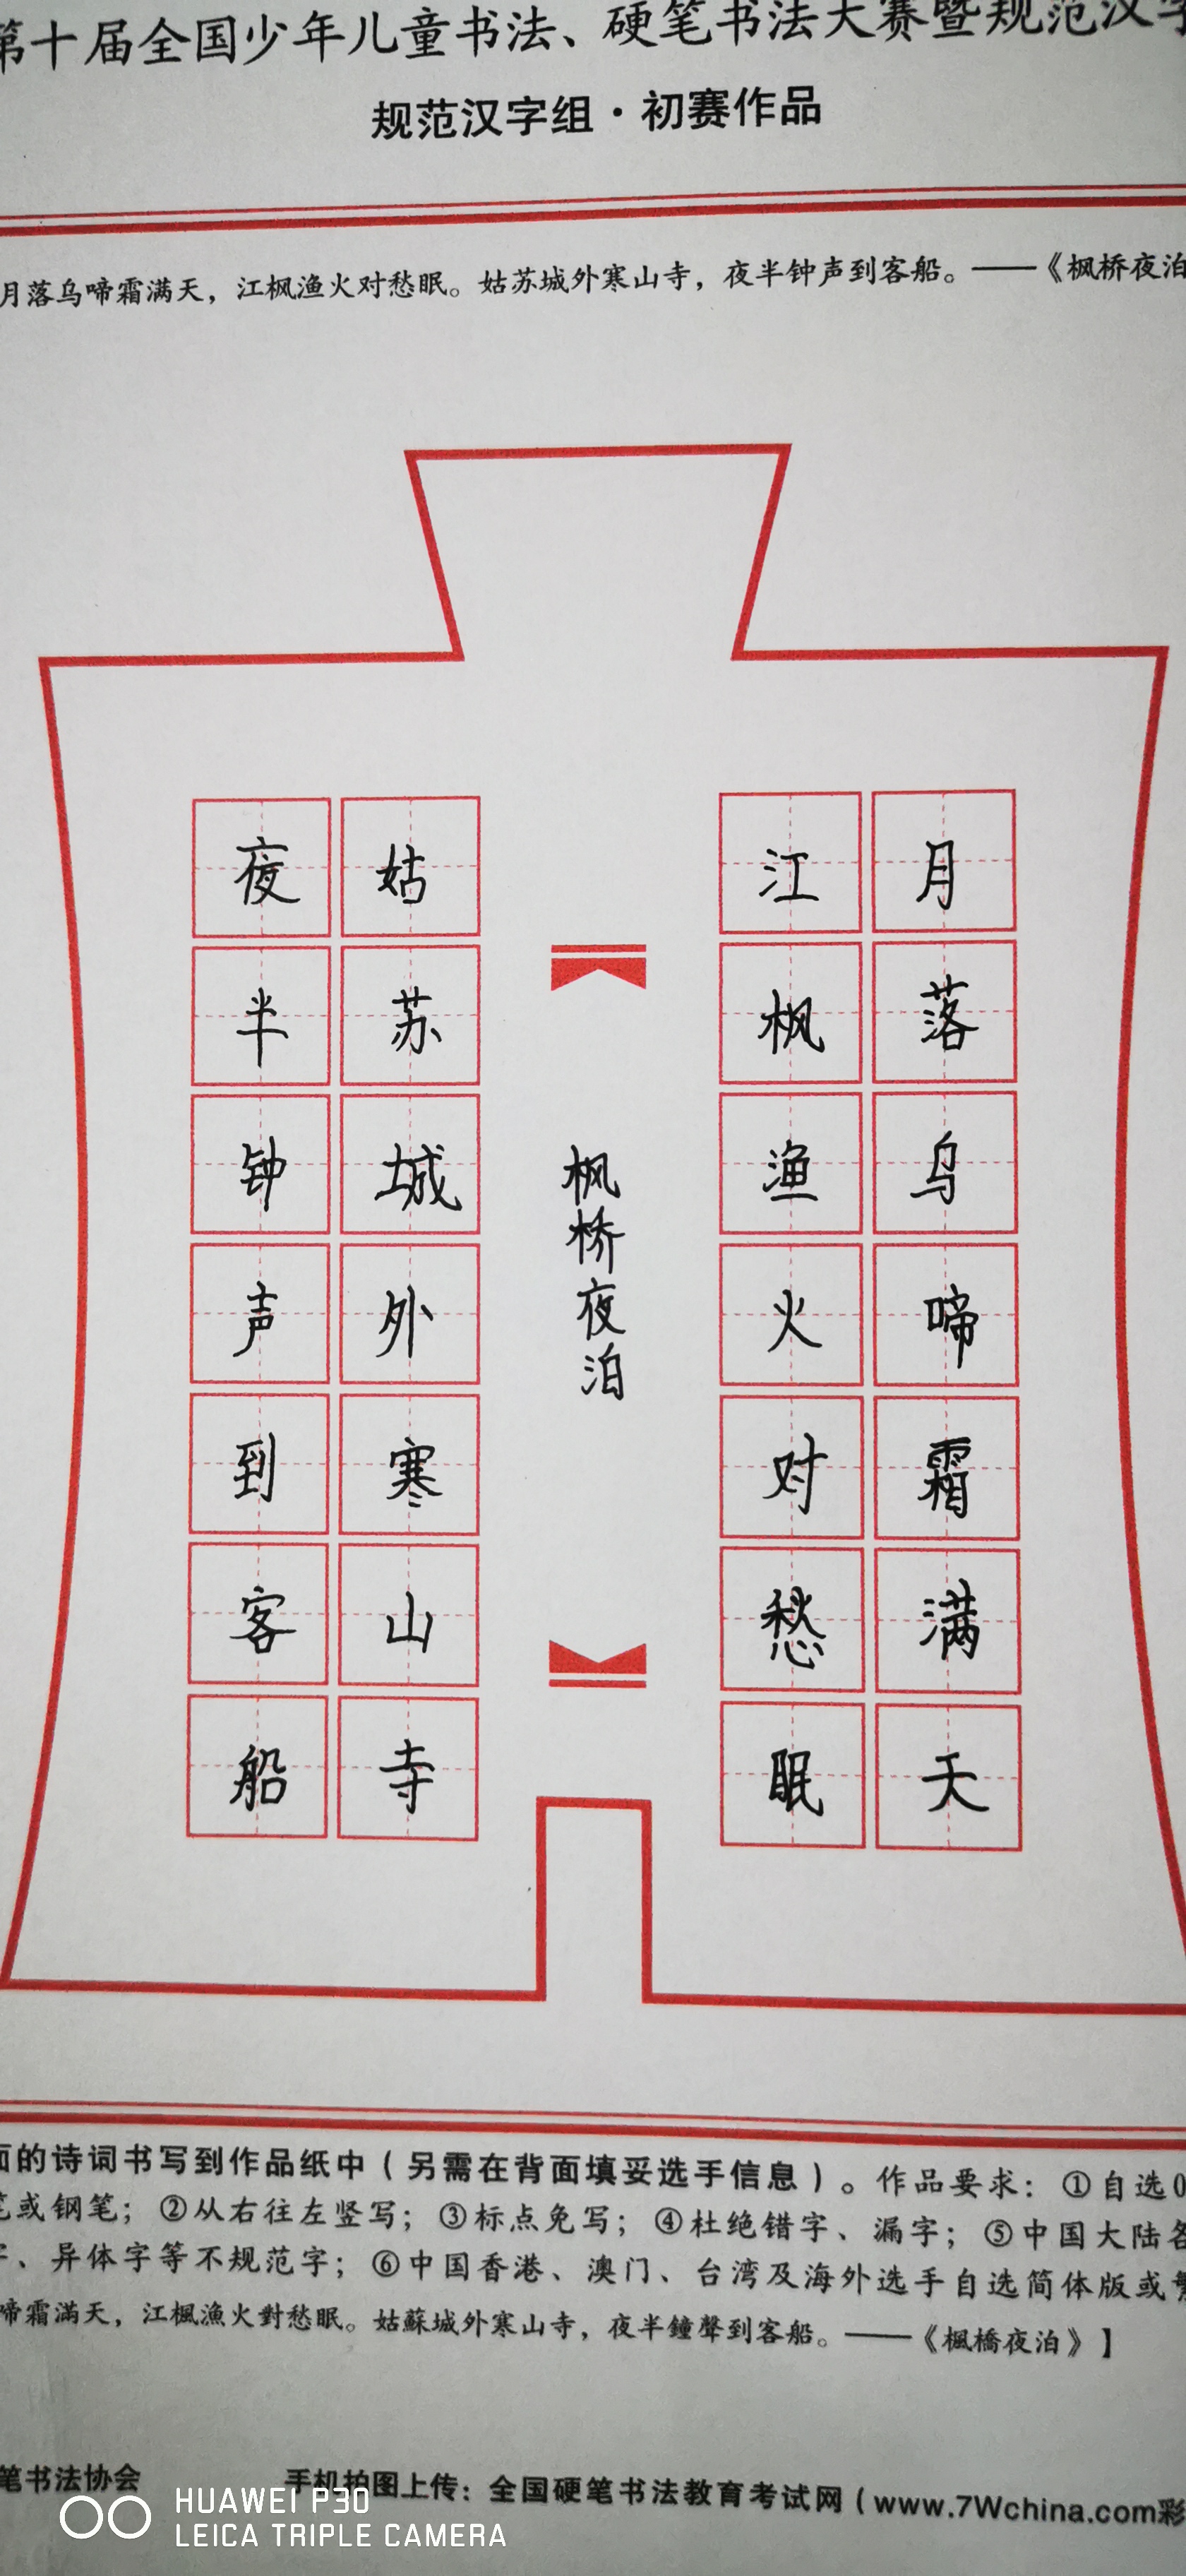 第十届全国少年儿童书法、硬笔书法大赛暨规范汉字
规范汉字组·初赛作品
月落乌啼霜满天，江枫渔火对愁眠。姑苏城外寒山寺，夜半钟声到客船。——《枫桥夜泊
月落乌啼霜满天
江枫渔火对愁眠
枫桥夜泊
姑苏城外寒山寺
夜半钟声到客船
面的诗词书写到作品纸中（另需在背面填妥选手信息）。作品要求：①自选0
笔或钢笔；②从右往左竖写；③标点免写；④杜绝错字、漏字；⑤中国大陆各
字、异体字等不规范字；⑥中国香港、澳门、台湾及海外选手自选简体版或繁
啼霜滿天，江楓漁火對愁眠。姑蘇城外寒山寺，夜半鐘聲到客船。——《楓橋夜泊》】
笔书法协会 手机拍图上传：全国硬笔书法教育考试网（www.7Wchina.com彩
HUAWEI P30
LEICA TRIPLE CAMERA